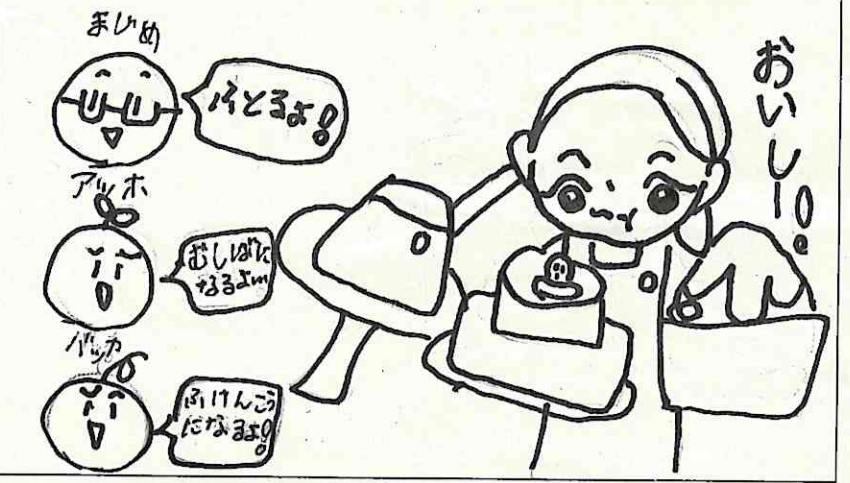 まじめ
ふとるよ!
アッホ
むしばに
なるよ
バッカ
ふけんこう
になるよ!
おいしー!